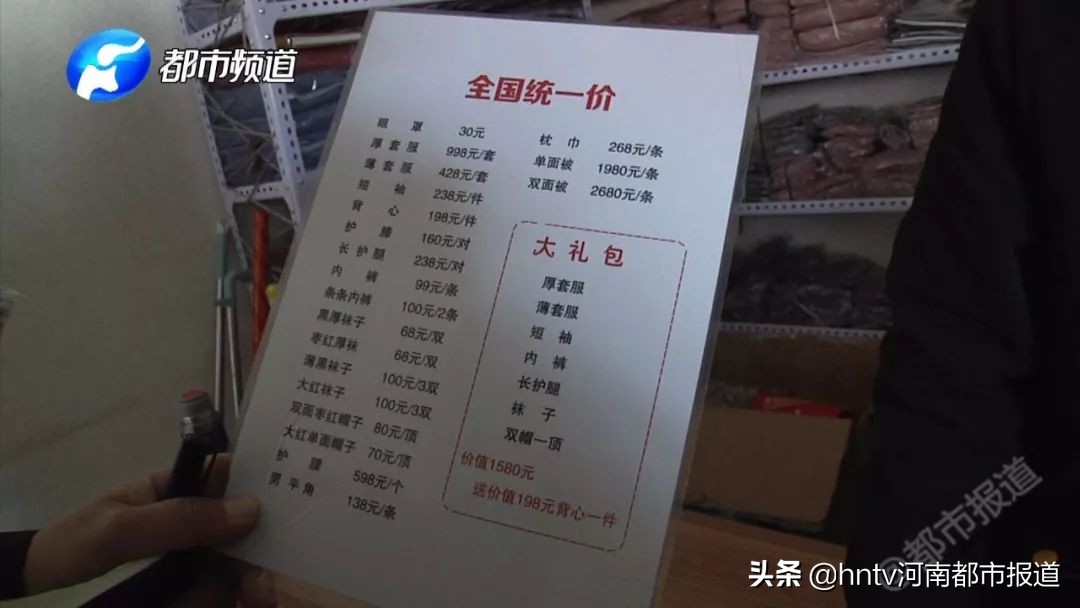 都市频道
全国统一价
眼罩 30元
厚套服 998元/套
薄套服 428元/套
短袖 238元/件
背心 198元/件
护膝 160元/对
长护腿 238元/对
内裤 99元/条
条条内裤 100元/2条
黑厚袜子 68元/双
枣红厚袜 68元/双
薄黑袜子 100元/3双
大红袜子 100元/3双
双面枣红帽子 80元/顶
大红单面帽子 70元/顶
护腰 598元/个
男平角 138元/条
枕巾 268元/条
单面被 1980元/条
双面被 2680元/条
大礼包
厚套服
薄套服
短袖
内裤
长护腿
袜子
双帽一顶
价值1580元
送价值198元背心一件
@都市报道
头条 @hntv河南都市报道